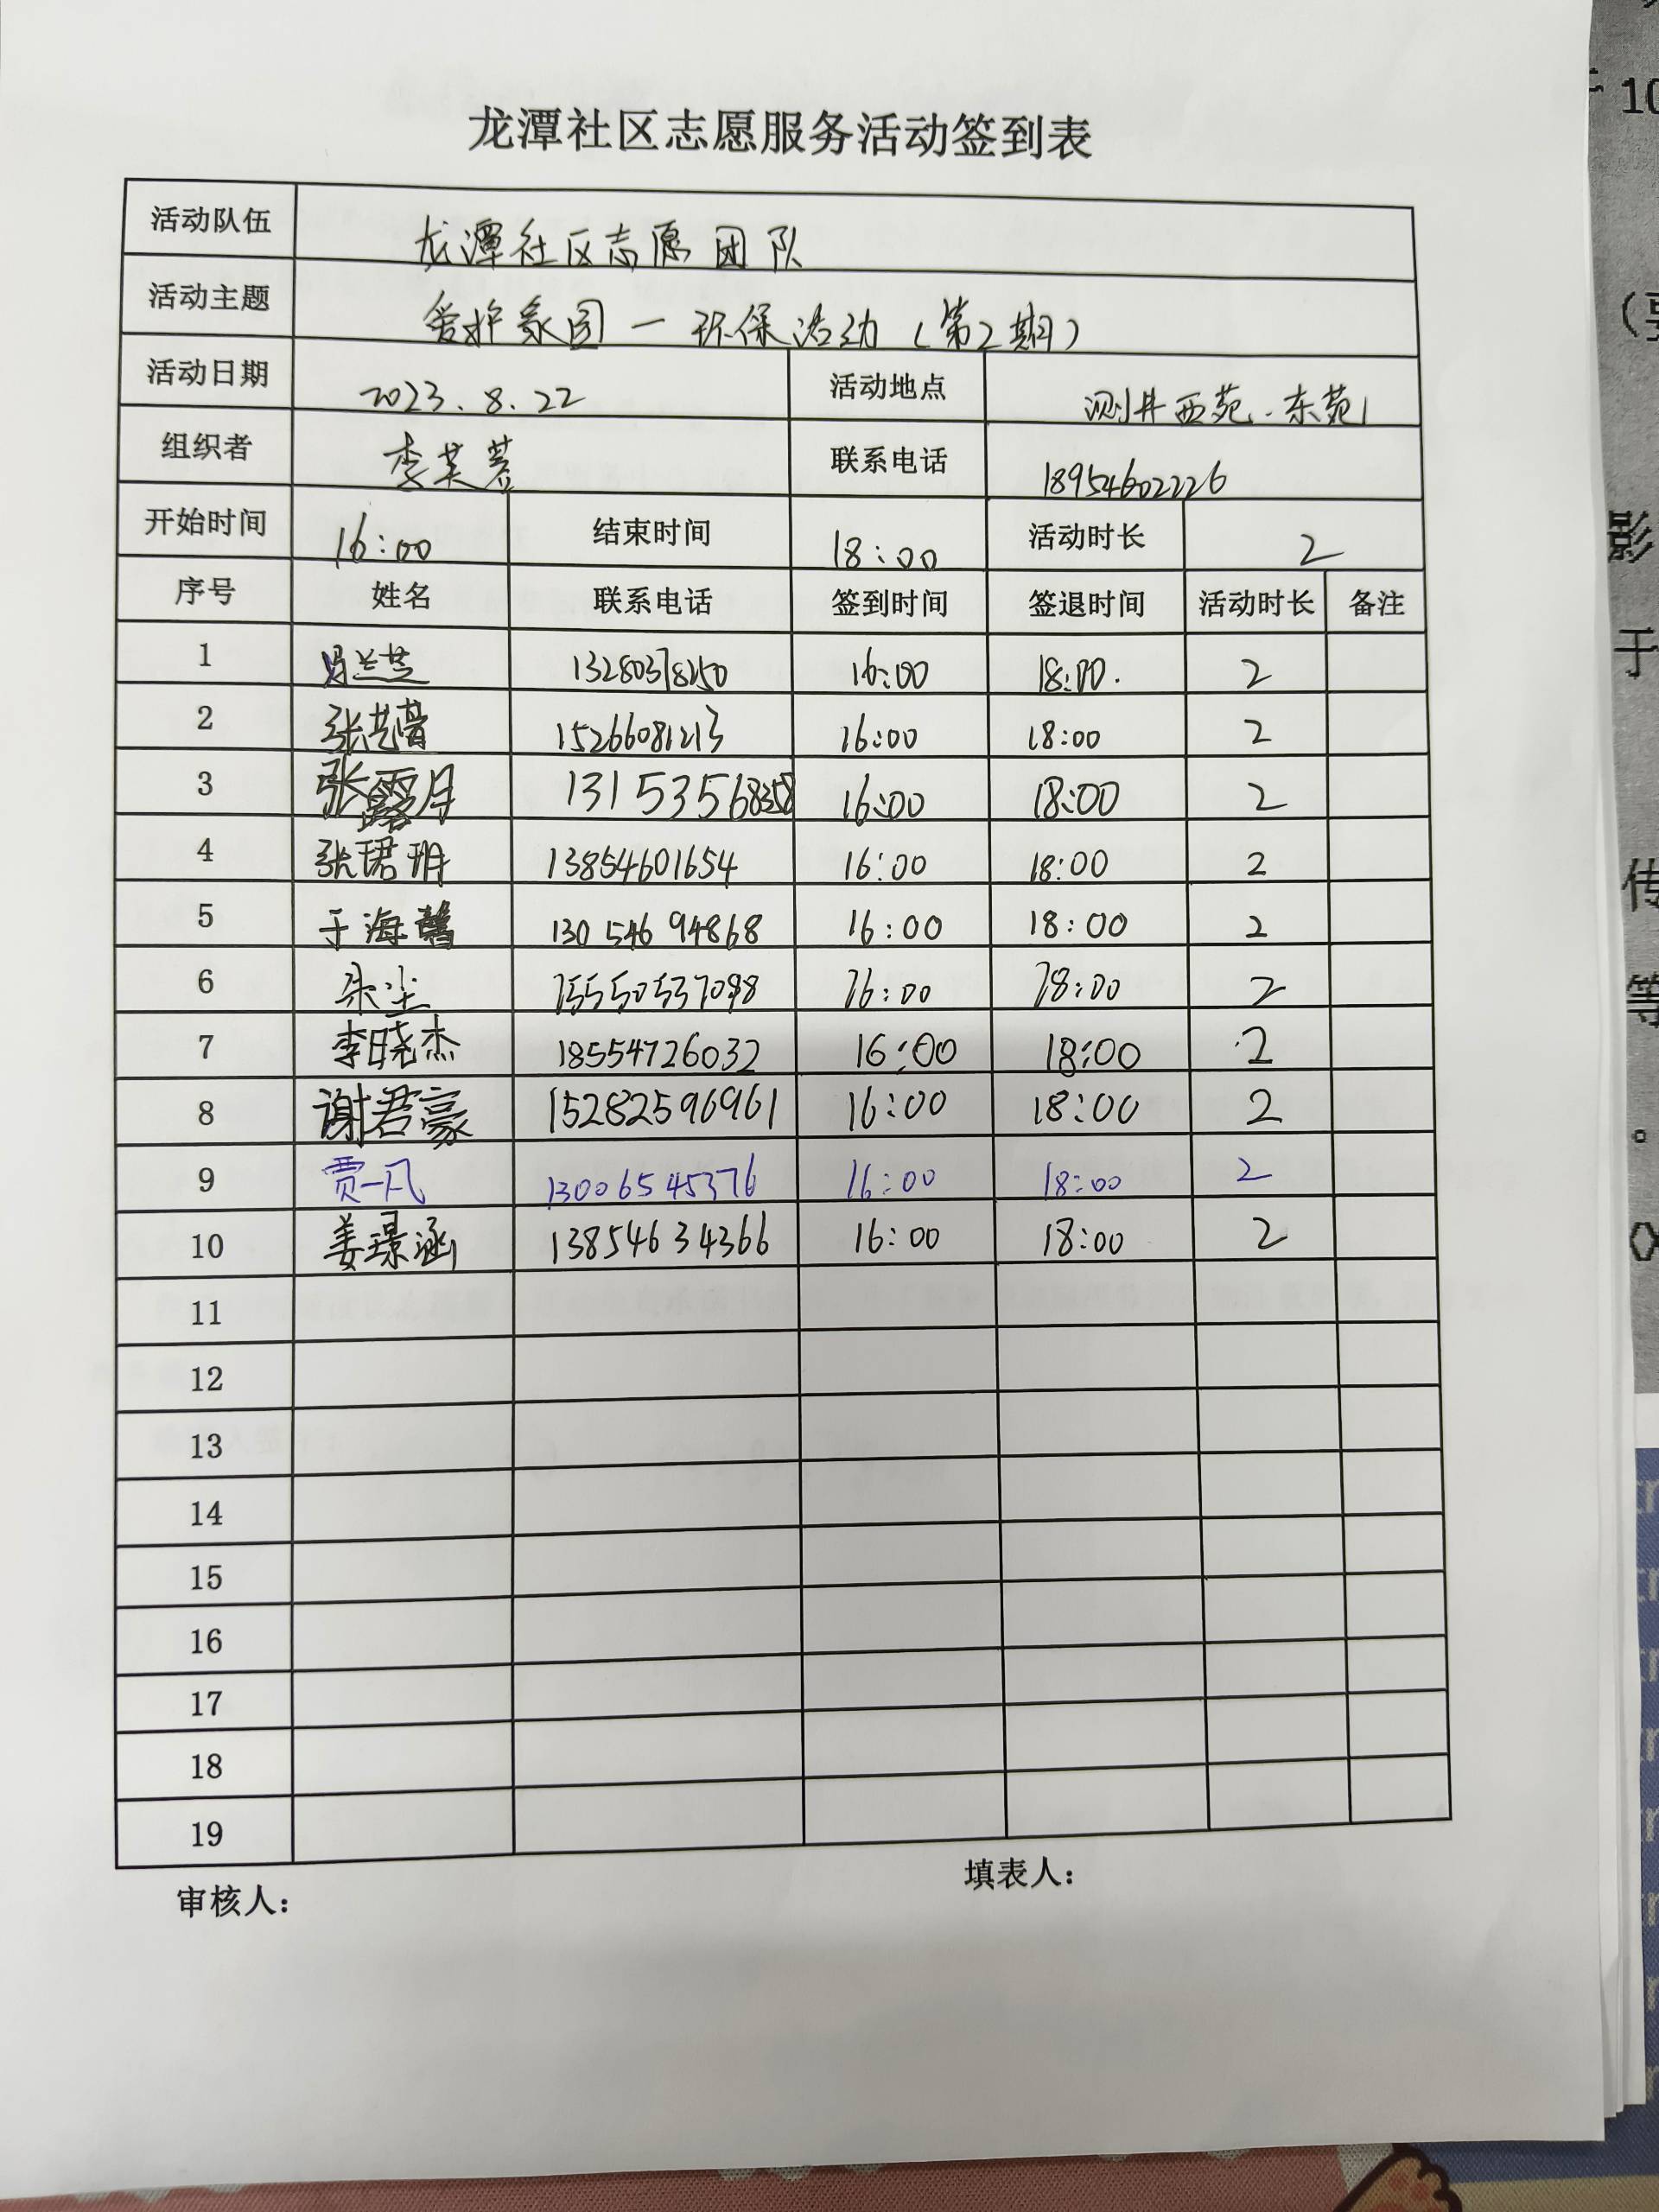 龙潭社区志愿服务活动签到表
活动队伍 龙潭社区志愿团队
活动主题 爱护家园一环保活动(第2期)
活动日期 2023.8.22 活动地点 测井西苑.东苑
组织者 李英蓉 联系电话 18954602226
开始时间 16:00 结束时间 18:00 活动时长 2
序号 姓名 联系电话 签到时间 签退时间 活动时长 备注
1 13280378250 16:00 18:00. 2
2 15266081213 16:00 18:00 2
3 张露月 13153568358 16:00 18:00 2
4 张珺玥 13854601654 16:00 18:00 2
5 于海馨 13054694868 16:00 18:00 2
6 朱尘 15550537098 16:00 18:00 2
7 李晓杰 18554726032 16:00 18:00 2
8 谢君豪 15282596961 16:00 18:00 2
9 贾一凡 13006545376 16:00 18:00 2
10 姜璟涵 13854634366 16:00 18:00 2
11
12
13
14
15
16
17
18
19
审核人: 填表人:
10
影
于
传
等